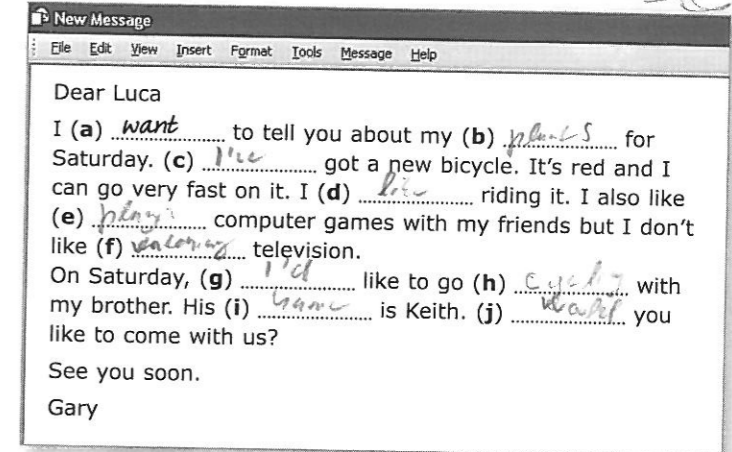 New Message
File Edit View Insert Format Tools Message Help
Dear Luca
I (a) want to tell you about my (b) for
Saturday. (c) I've got a new bicycle. It's red and I
can go very fast on it. I (d) like riding it. I also like
(e) computer games with my friends but I don't
like (f) television.
On Saturday, (g) I'd like to go (h) with
my brother. His (i) name is Keith. (j) you
like to come with us?
See you soon.
Gary